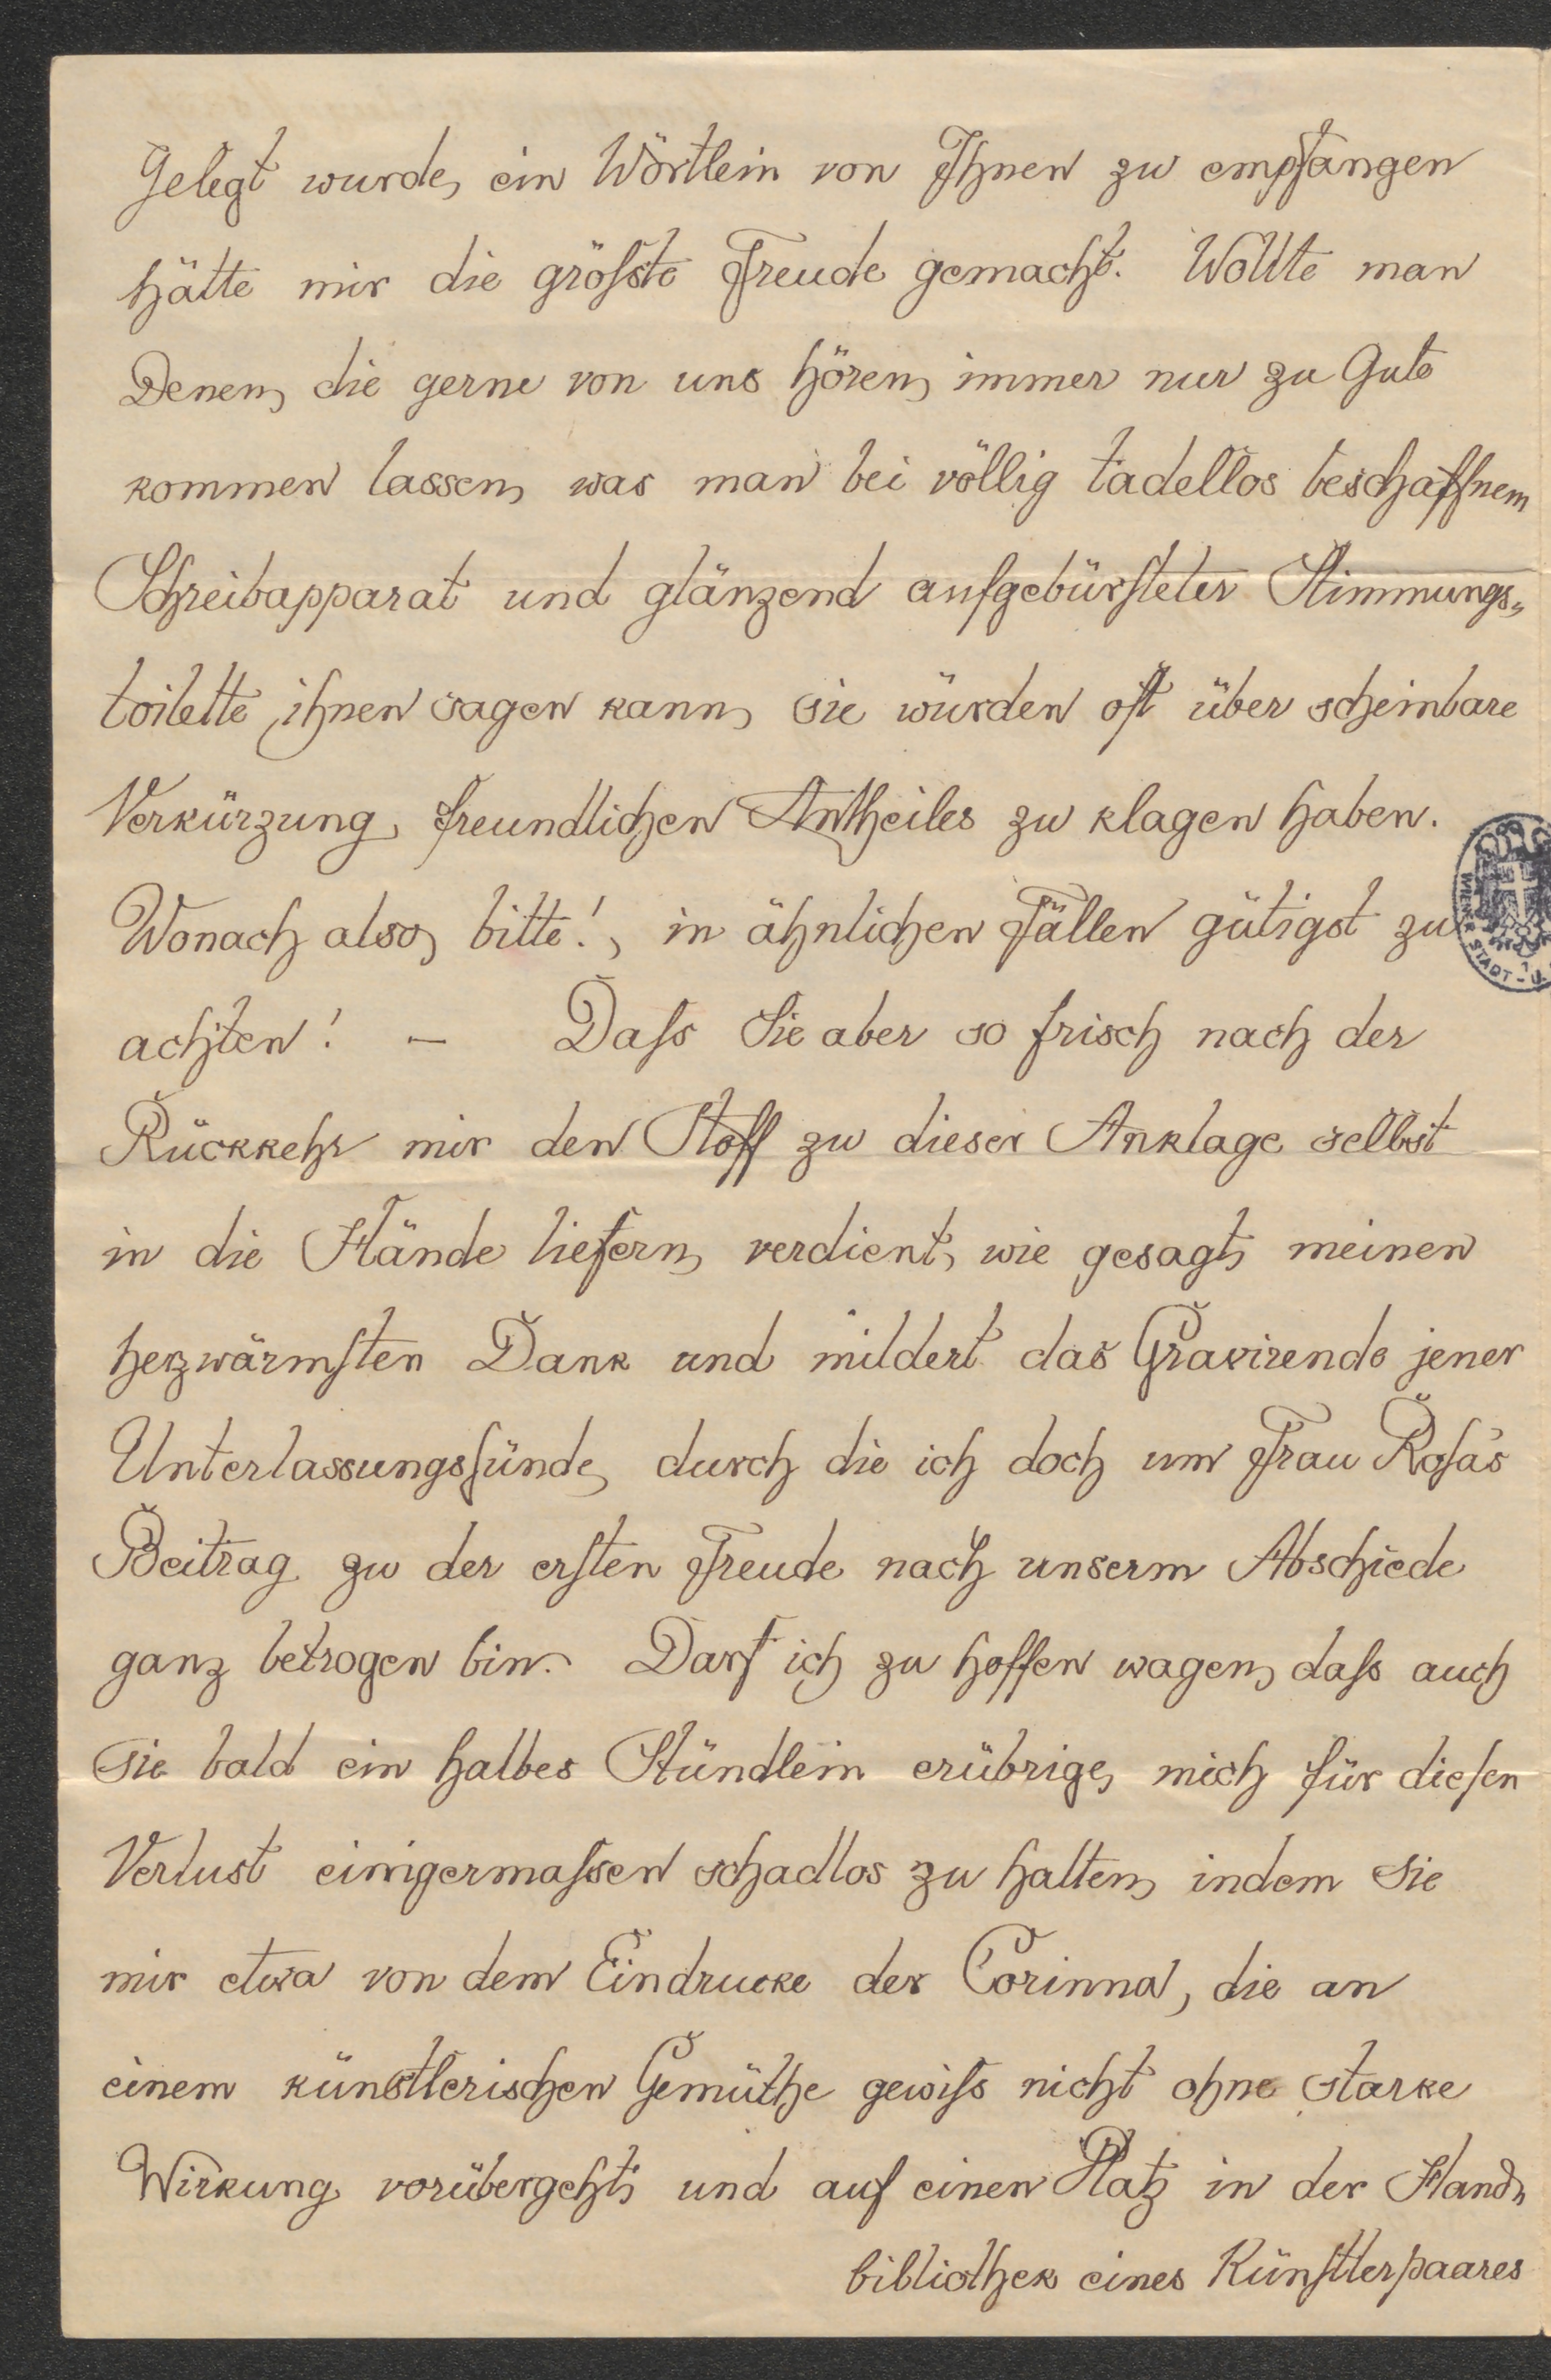 Gelegt wurde, ein Wörtlein von Ihnen zu empfangen
hätte mir die größste Freude gemacht. Wollte man
Denen, die gerne von uns hören, immer nur zu Gute
kommen lassen, was man bei völlig tadellos beschaffnem
Schreibapparat und glänzend aufgebürsteter Stimmungs-
toilette ihnen sagen kann, sie würden oft über scheinbare
Verkürzung freundlichen Antheiles zu klagen haben.
Wonach also, bitte!, in ähnlichen Fällen gütigst zu
achten! — Daſs Sie aber so frisch nach der
Rückkehr mir den Stoff zu dieser Anklage selbst
in die Hände liefern, verdient, wie gesagt, meinen
herzwärmsten Dank und mildert das Gravirende jener
Unterlassungssünde, durch die ich doch um Frau Rosa's
Beitrag zu der ersten Freude nach unserm Abschiede
ganz betrogen bin. Darf ich zu hoffen wagen, daſs auch
sie bald ein halbes Stündlein erübrige, mich für diesen
Verlust einigermaſsen schadlos zu halten, indem sie
mir etwa von dem Eindrucke der Corinna, die an
einem künstlerischen Gemüthe gewiſs nicht ohne starke
Wirkung vorübergeht, und auf einen Platz in der Hand-
bibliothek eines Künstlerpaares
WIENER STADT-U.